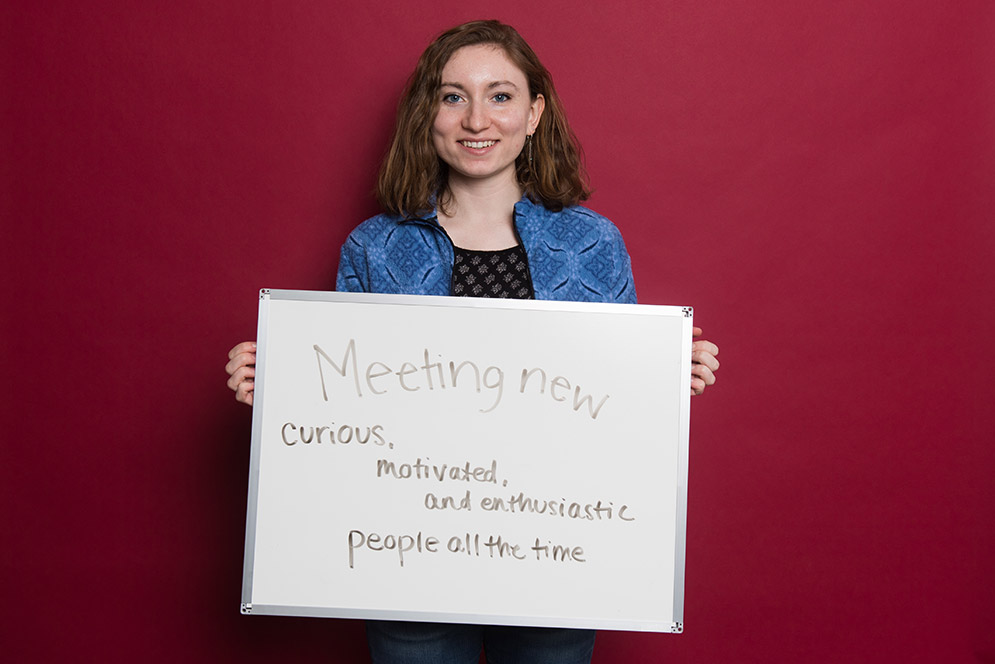 Meeting new
curious,
motivated,
and enthusiastic
people all the time